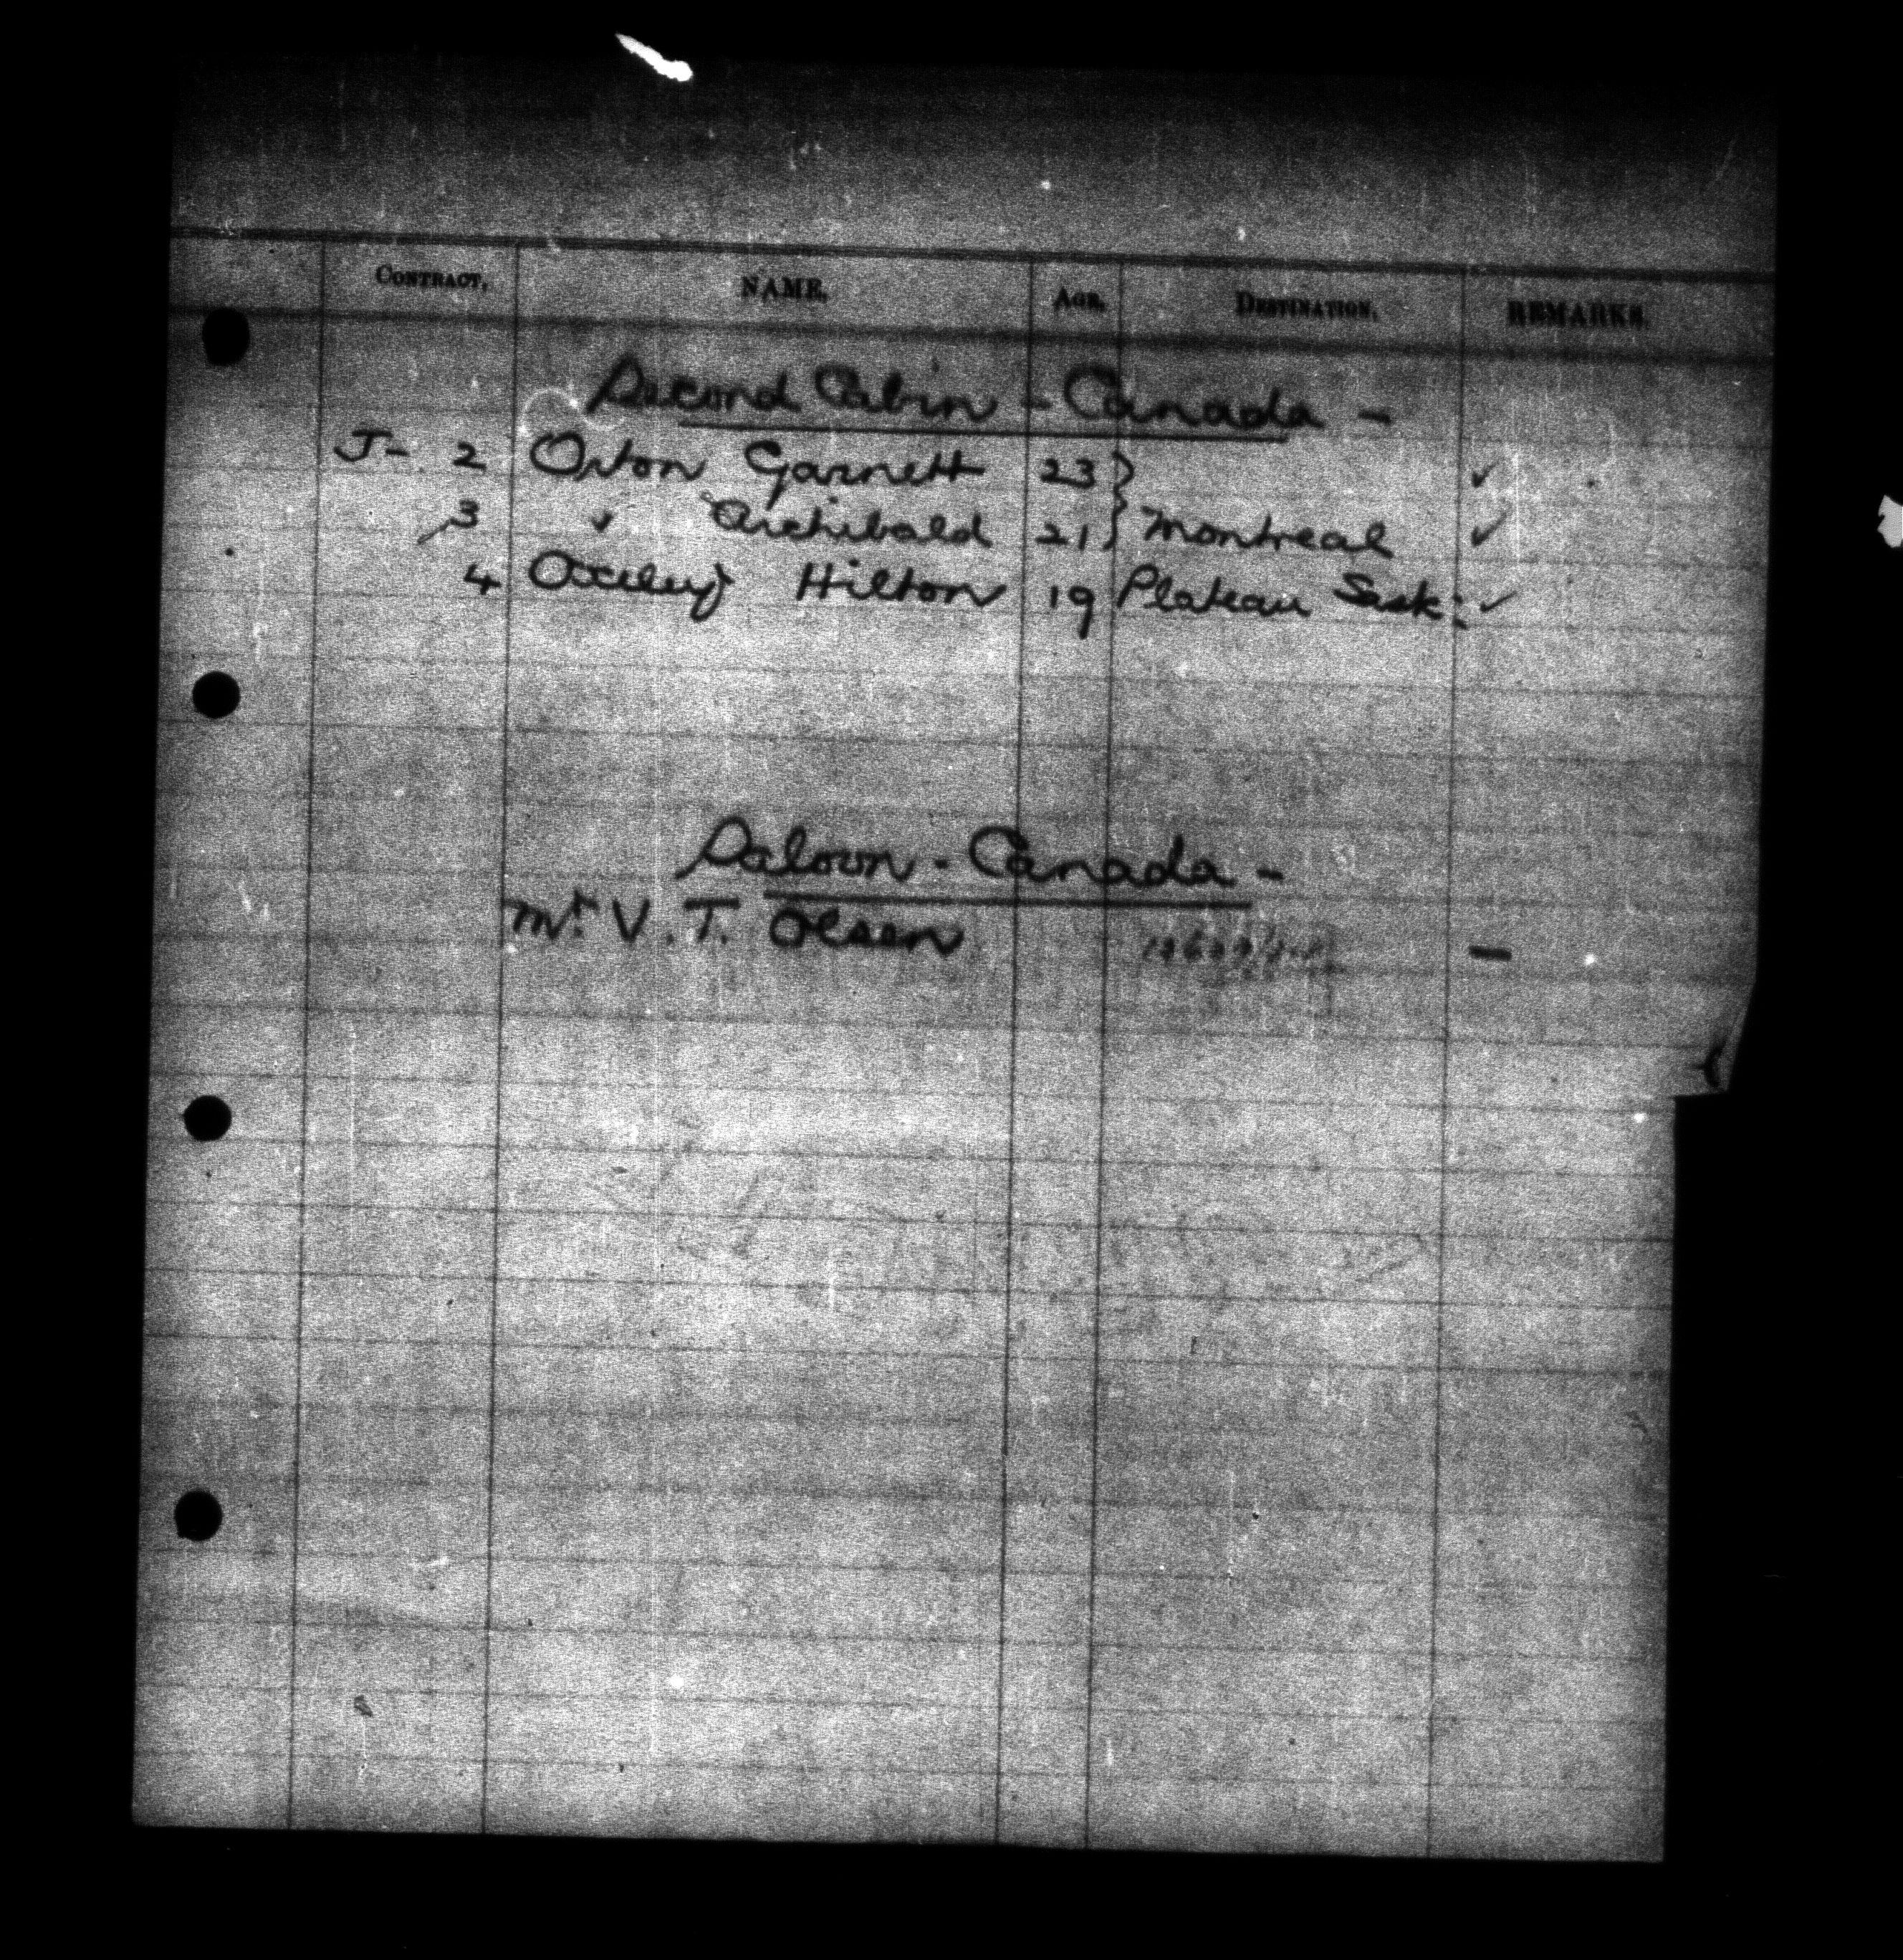 CONTRACT. NAME. AGE. DESTINATION. REMARKS.
Second Cabin - Canada -
J- 2 Orton Garnett 23 } ✓
3 " Archibald 21 } Montreal ✓
4 Oxley Hilton 19 Plateau Sask: ✓
Saloon - Canada -
Mr. V. T. Olsen —